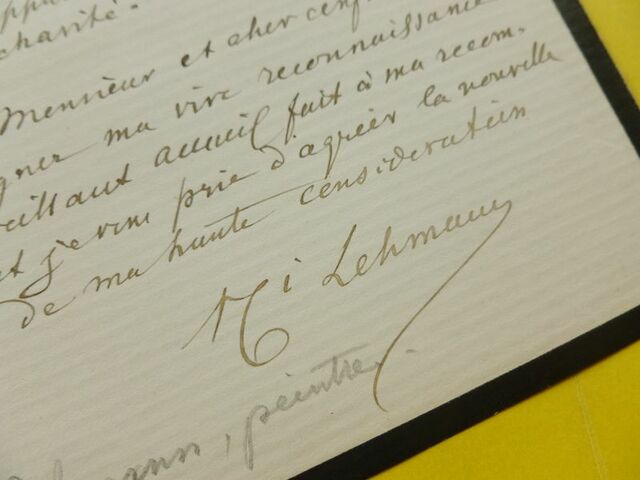 charité.
Monsieur et cher conf
gner ma vive reconnaissance
eillant accueil fait à ma recom-
et je vous prie d'agréer la nouvelle
de ma haute considération
Hi Lehmann
hmann, peintre.